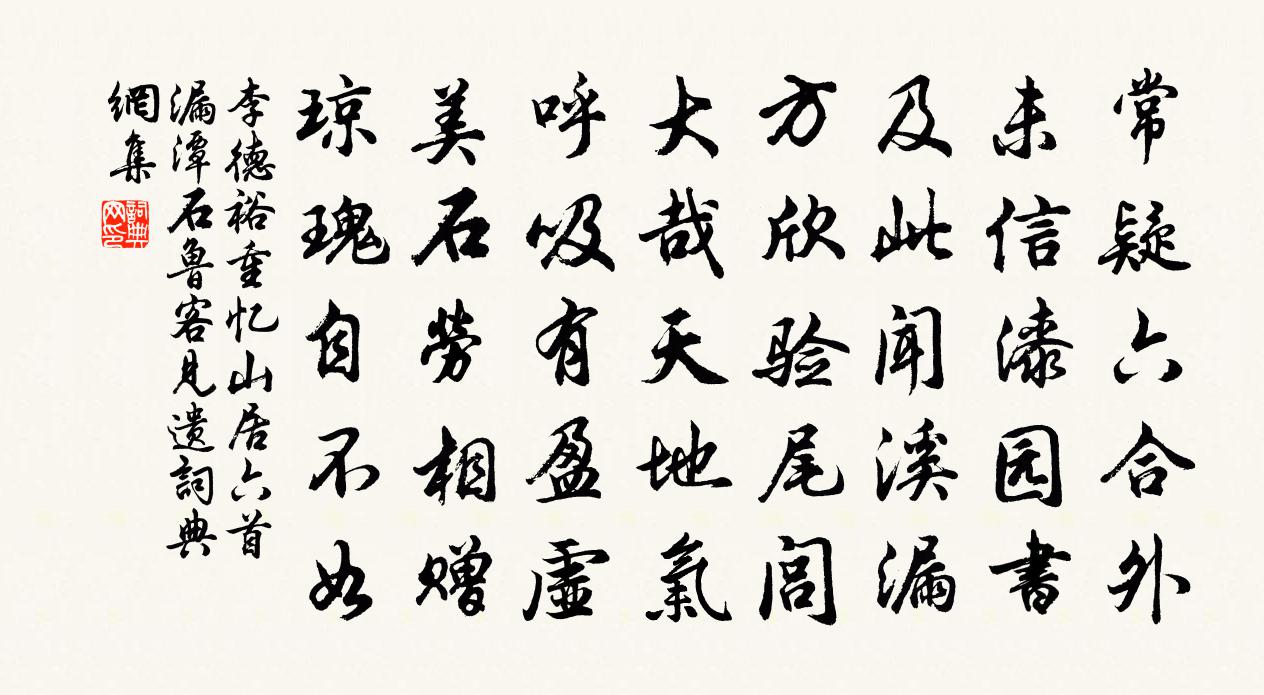 常疑六合外
未信漆园書
及此闻溪漏
方欣验尾闾
大哉天地氣
呼吸有盈虛
美石勞相赠
琼瑰自不如
李德裕重忆山居六首
漏潭石魯客見遗詞典
網集
詞典网印